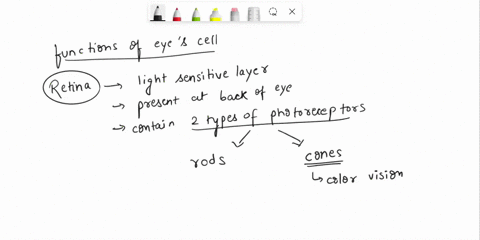 functions of eye's cell
Retina → light sensitive layer
→ present at back of eye
→ contain 2 types of photoreceptors
rods
cones
↳ color vision